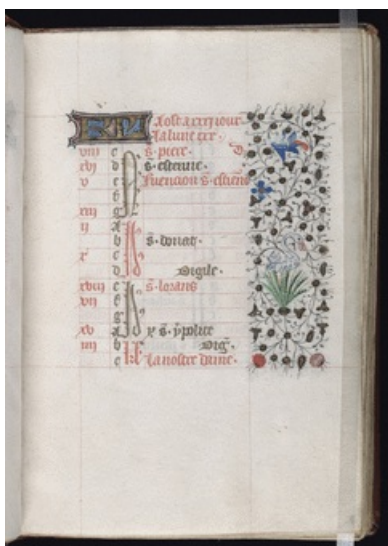 KL Aost a xxxi iour.
La lune xxx.
viii c s. piere. D.
xvi d s. estenne.
v e Luencion s. estiene
f
xiii g
ii A
b s. donat.
x c
d vigile.
xviii e s. lorans
vii f
g
xv A s. ypolite
iiii b vig.
c la nostre dame.